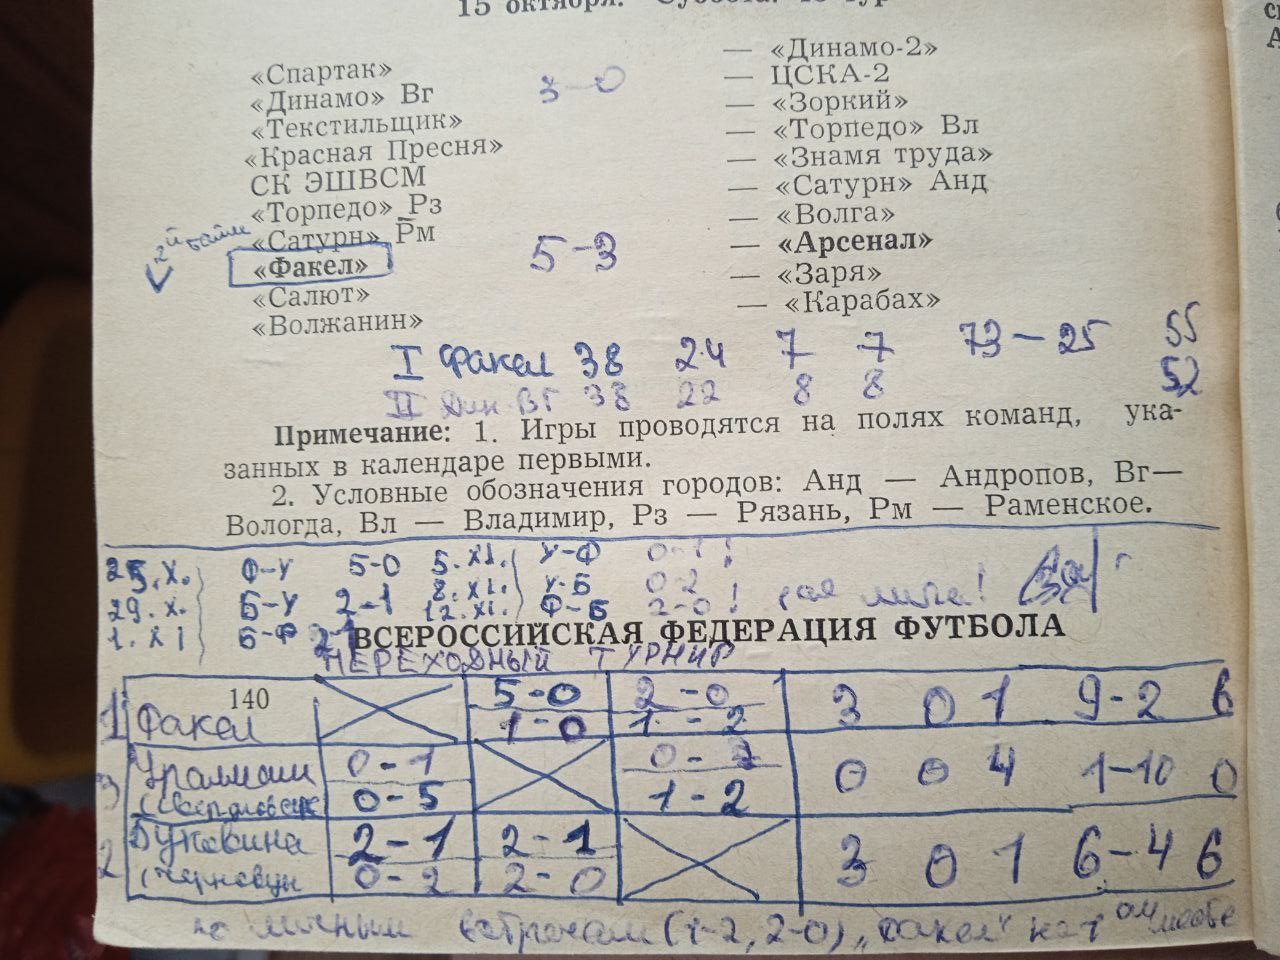 15 октября. Суббота.
«Спартак» — «Динамо-2»
«Динамо» Вг 3-0 — ЦСКА-2
«Текстильщик» — «Зоркий»
«Красная Пресня» — «Торпедо» Вл
СК ЭШВСМ — «Знамя труда»
«Торпедо» Рз — «Сатурн» Анд
«Сатурн» Рм — «Волга»
«Факел» 5-3 — «Арсенал»
«Салют» — «Заря»
«Волжанин» — «Карабах»
I Факел 38 24 7 7 73-25 55
II Дин. Вг 38 22 8 8 52
Примечание: 1. Игры проводятся на полях команд, ука-
занных в календаре первыми.
2. Условные обозначения городов: Анд — Андропов, Вг—
Вологда, Вл — Владимир, Рз — Рязань, Рм — Раменское.
25.X. Ф-У 5-0 5.XI. У-Ф 0-1!
29.X. Б-У 2-1 8.XI. У-Б 0-2
1.XI Б-Ф 2-1 12.XI. Ф-Б 2-0!
ВСЕРОССИЙСКАЯ ФЕДЕРАЦИЯ ФУТБОЛА
ПЕРЕХОДНЫЙ ТУРНИР
140
1 Факел 5-0 2-0 3 0 1 9-2 6
1-0 1-2
3 Уралмаш 0-1 0-2 0 0 4 1-10 0
(Свердловск 0-5 1-2
2 Буковина 2-1 2-1 3 0 1 6-4 6
(Черновцы 0-2 2-0
по личным встречам (1-2, 2-0) „Факел" на 1 ом месте